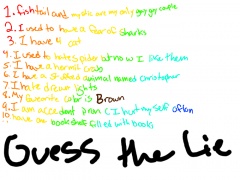 1. fishtail and mystic are my only gay gay couple
2. I used to have a fear of sharks
3. I have 4 cat
4. I used to hate spider but now I like them
5. I have a hermit crab
6. I have a stuffed animal named christopher
7. I hate driving lights
8. My favorite color is Brown
9. I am accedent pron (I hurt my self often
10. have one bookshelf filled with books
Guess the Lie